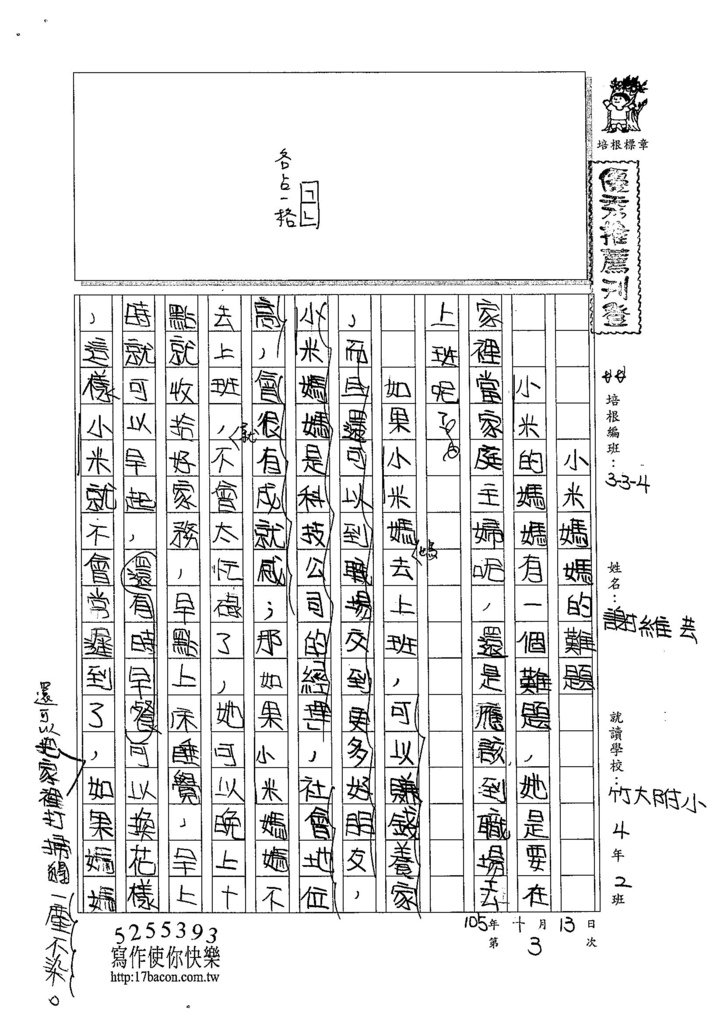 培根標章
優秀推薦刊登
培根編班：3-3-4
姓名：謝維芸
就讀學校：竹大附小4年2班
105年十月13日
第3次
各占一格
小米媽媽的難題
小米的媽媽有一個難題，她是要在
家裡當家庭主婦呢，還是應該到職場去
上班呢？
如果小米媽去上班，可以賺錢養家
媽
，而且還可以到職場交到更多好朋友，
小米媽媽是科技公司的經理，社會地位
高，會很有成就感；那如果小米媽媽不
去上班，不會太忙碌了，她可以晚上十
就
點就收拾好家務，早點上床睡覺，早上
時就可以早起，還有時早餐可以換花樣
，這樣小米就不會常遲到了，如果媽媽
還可以把家裡打掃得一塵不染。
5255393
寫作使你快樂
http:17bacon.com.tw